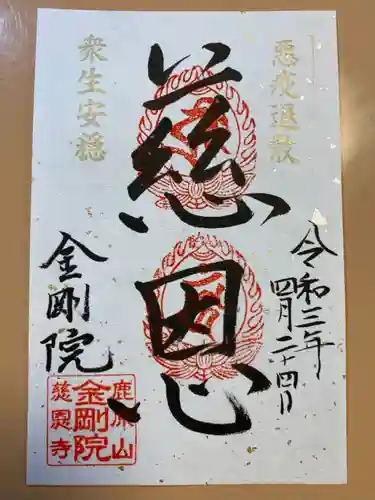 悪疫退散
令和三年
四月二十四日
慈恩
衆生安穏
金剛院
鹿原山
金剛院
慈恩寺